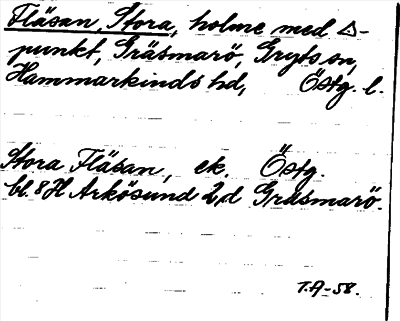 Fläsan, Stora, holme med △-
punkt, Gräsmarö, Gryts sn,
Hammarkinds hd, Östg. l.
Stora Fläsan, ek. Östg.
bl. 8 H Arkösund 2,d Gräsmarö.
T.A-58.